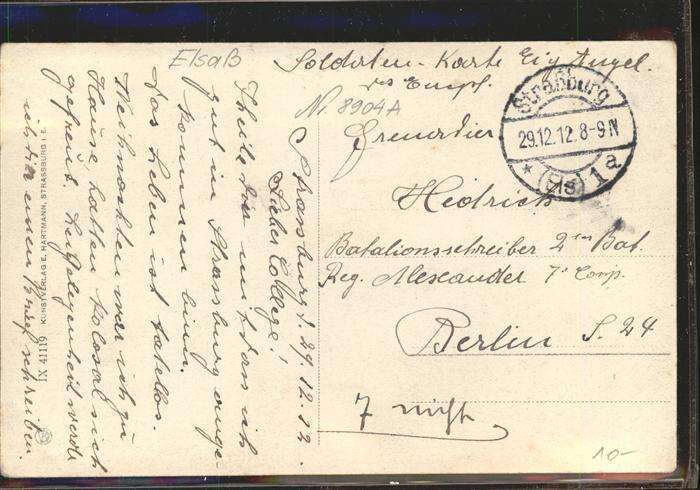 Elsaß
Soldaten-Karte Eig. Angel.
des Empf.
Nr 8904A
Strassburg
29.12.12.8-9N
* (Els) 1a
Grenadier
Heidrich
Batalionsschreiber 2ten Bat.
Reg. Alexander 7' Comp.
Berlin S. 24
7 nicht
10-
Strassburg d. 29.12.12.
Lieber College!
Theile Dir mit das ich
gut in Strassburg ange-
kommen bin.
Das Leben ist tadellos.
Weihnachten war ich zu
Hause, hatten kolossal sich
gefreut. Bei Gelegenheit werde
ich Dir einen Brief schreiben.
KUNSTVERLAG E. HARTMANN, STRASSBURG i. E.
IX 41119